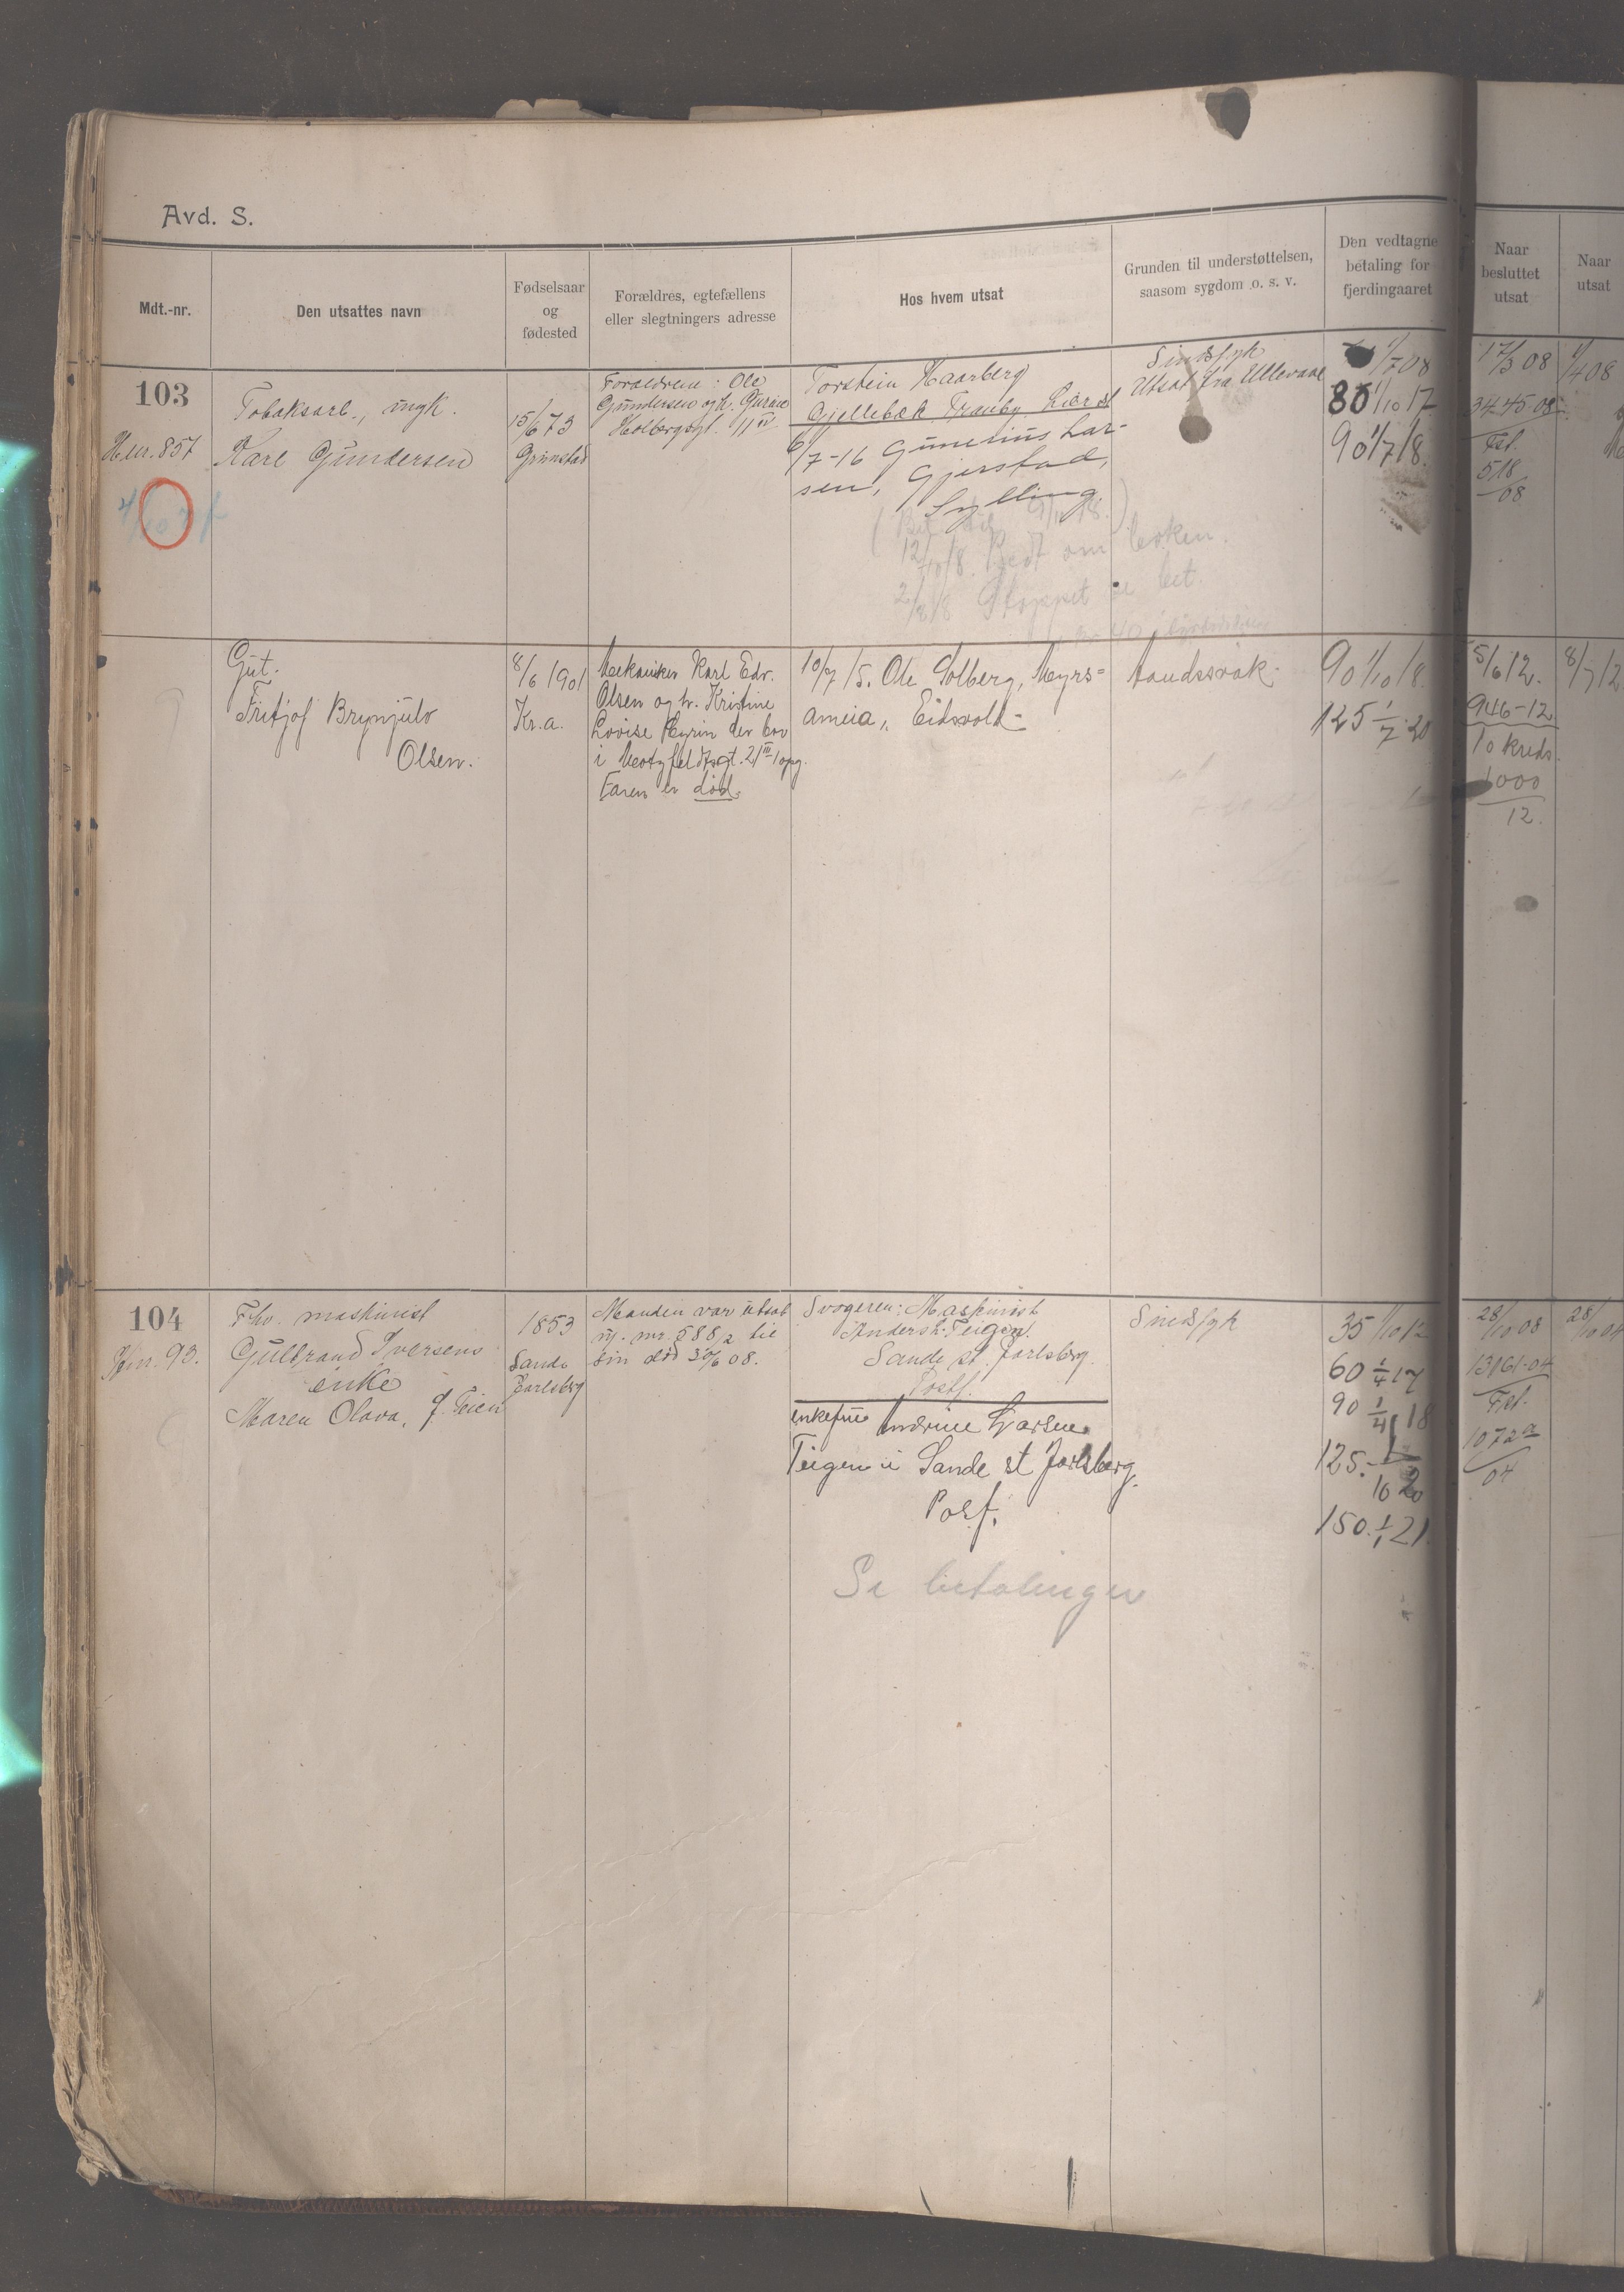 Avd. S.
Mdt.-nr.
Den utsattes navn
Fødselsaar
og
fødested
Forældres, egtefællens
eller slegtningers adresse
Hos hvem utsat
Grunden til understøttelsen,
saasom sygdom o. s. v.
Den vedtagne
betaling for
fjerdingaaret
Naar
besluttet
utsat
Naar
utsat
103
H.nr. 857
Tobaksarb., ungk.
Karl Gundersen
15/6 73
Grimstad
Forældrene: Ole
Gundersen og h. Gurine
Holbergsgt. 11 IV
Torstein Haarberg
Gjellebæk Tranby. Lier st
6/7-16 Gunerius Lar-
sen, Gjerstad,
Sylling.
12/10 18. Bedt om
2/8 18 Stoppet
Sindssyk
Utsat fra Ullevaal
1/7 08
80 1/10 17
90 1/7 18.
17/3 08
3445-08
Fst.
518
08
1/4 08
Gut.
Fritjof Brynjulv
Olsen.
8/6 1901
Kr.a.
Mekaniker Karl Edv.
Olsen og h. Kristine
Lovise Hyrin der bor
i Motzfeldtsgt. 21 III 1 opg.
Faren er død.
10/7 15. Ole Solberg, Myrs=
ameia, Eidsvold
Aandssvak.
90 1/10 18.
125 1/7 20
5/6 12.
946-12
10 kreds.
1000
12.
8/7 12
104
H.nr. 93.
Fhv. maskinist
Gulbrand Iversens
enke
Maren Olava, f. Teien
1853
Sande
Jarlsberg
Manden var utsat
u. nr. 588/2 til
sin død 30/6 08.
Svogeren: Maskinist
Anders L. Teigen.
Sande st. Jarlsberg.
Postf.
enkefrue Andrine Larsen
Teigen i Sande st Jarlsberg.
Posf.
Se betalingen
Sindssyk
35 1/10 12
60 1/4 17
90 1/4 18
125. 1/10 20
150. 1/1 21.
28/10 08
13161-04
Fst.
1072 a
04
28/10 04